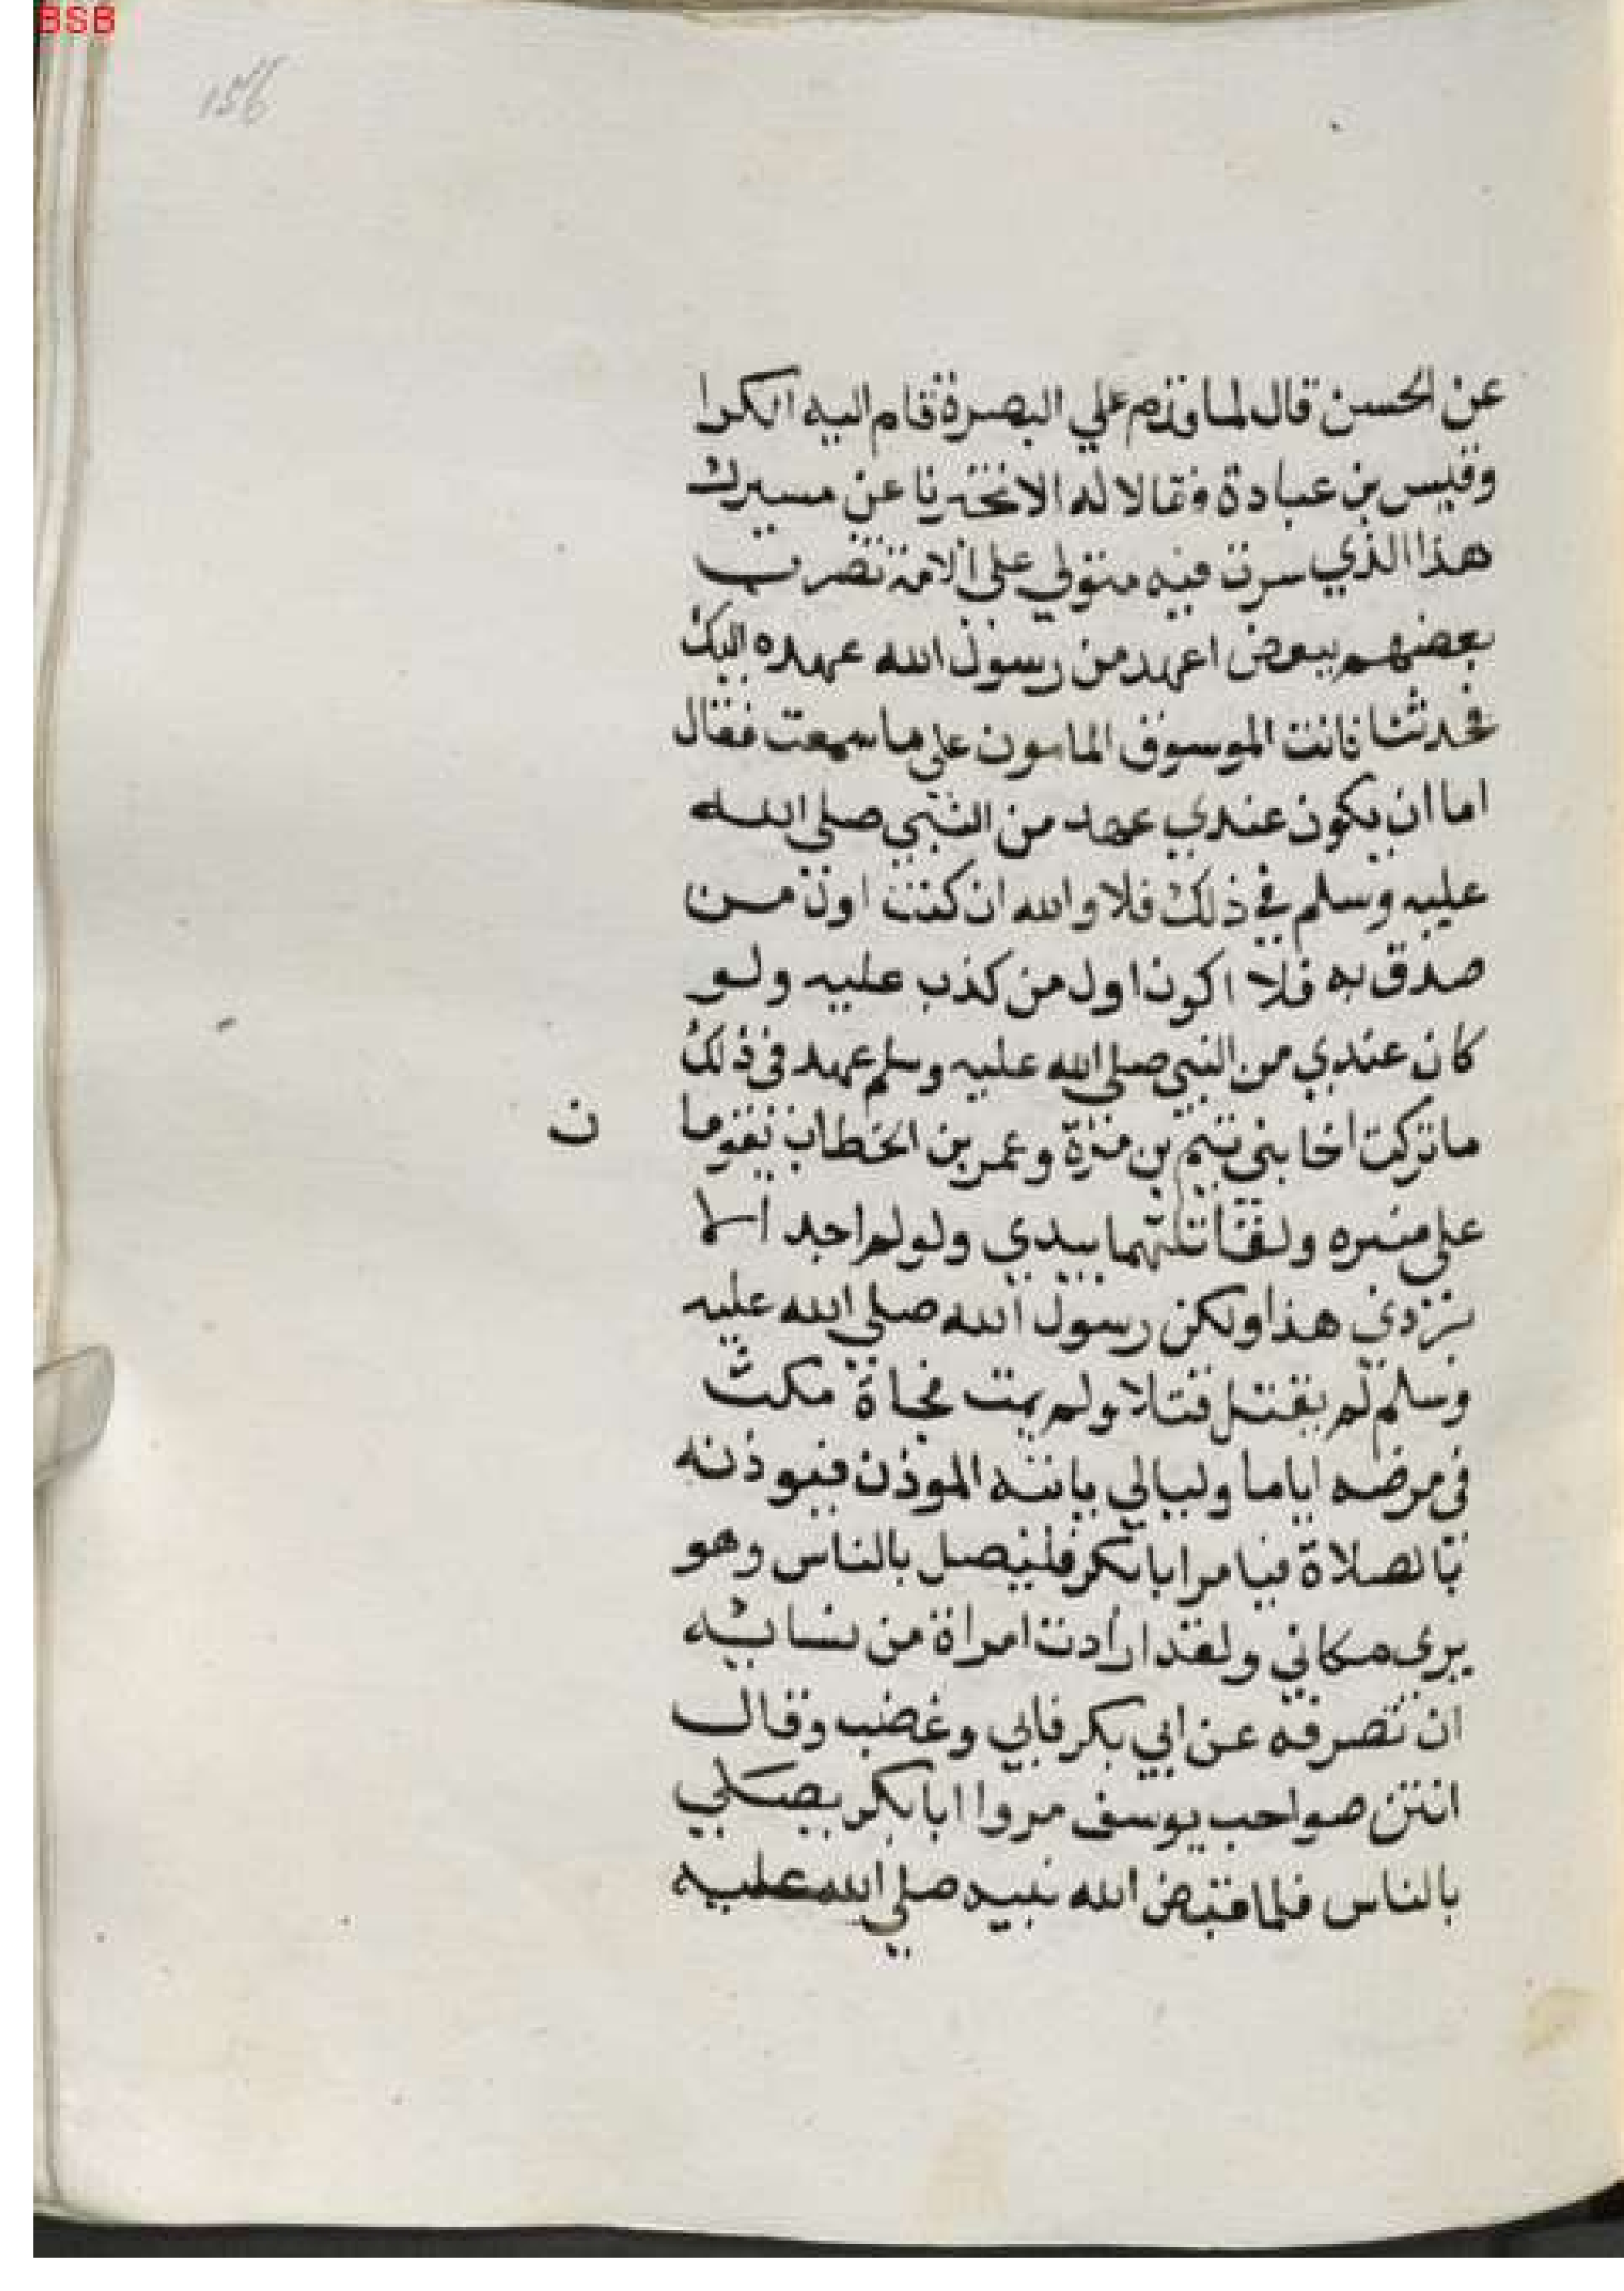 BSB
156
عن الحسن قال لما قدم علي البصرة قام اليه ابكرا
وقيس بن عبادة فقالا له الا تخبرنا عن مسيرك
هذا الذي سرت فيه متولي علي الامة تضرب
بعضهم ببعض اعهد من رسول الله عهده اليك
فحدثنا فانت الموسوق المامون علي ما سمعت فقال
اما ان يكون عندي عهد من النبي صلي الله
عليه وسلم في ذلك فلا والله ان كنت اول من
صدق به فلا اكون اول من كذب عليه ولو
كان عندي من النبي صلي الله عليه وسلم عهد في ذلك
ما تركت اخا بني تيم بن مرة وعمر بن الخطاب يقوما
ن
علي منبره ولقاتلتهما بيدي ولو لم اجد الا
بردي هذا ولكن رسول الله صلي الله عليه
وسلم لم يقتل قتلا ولم يمت فجاة مكث
في مرضه اياما وليالي ياتيه الموذن فيوذنه
بالصلاة فيامر ابا بكر فليصل بالناس وهو
يري مكاني ولقد ارادت امراة من نسائه
ان تصرفه عن ابي بكر فابي وغضب وقال
انتن صواحب يوسف مروا ابا بكر يصلي
بالناس فلما قبض الله نبيه صلي الله عليه